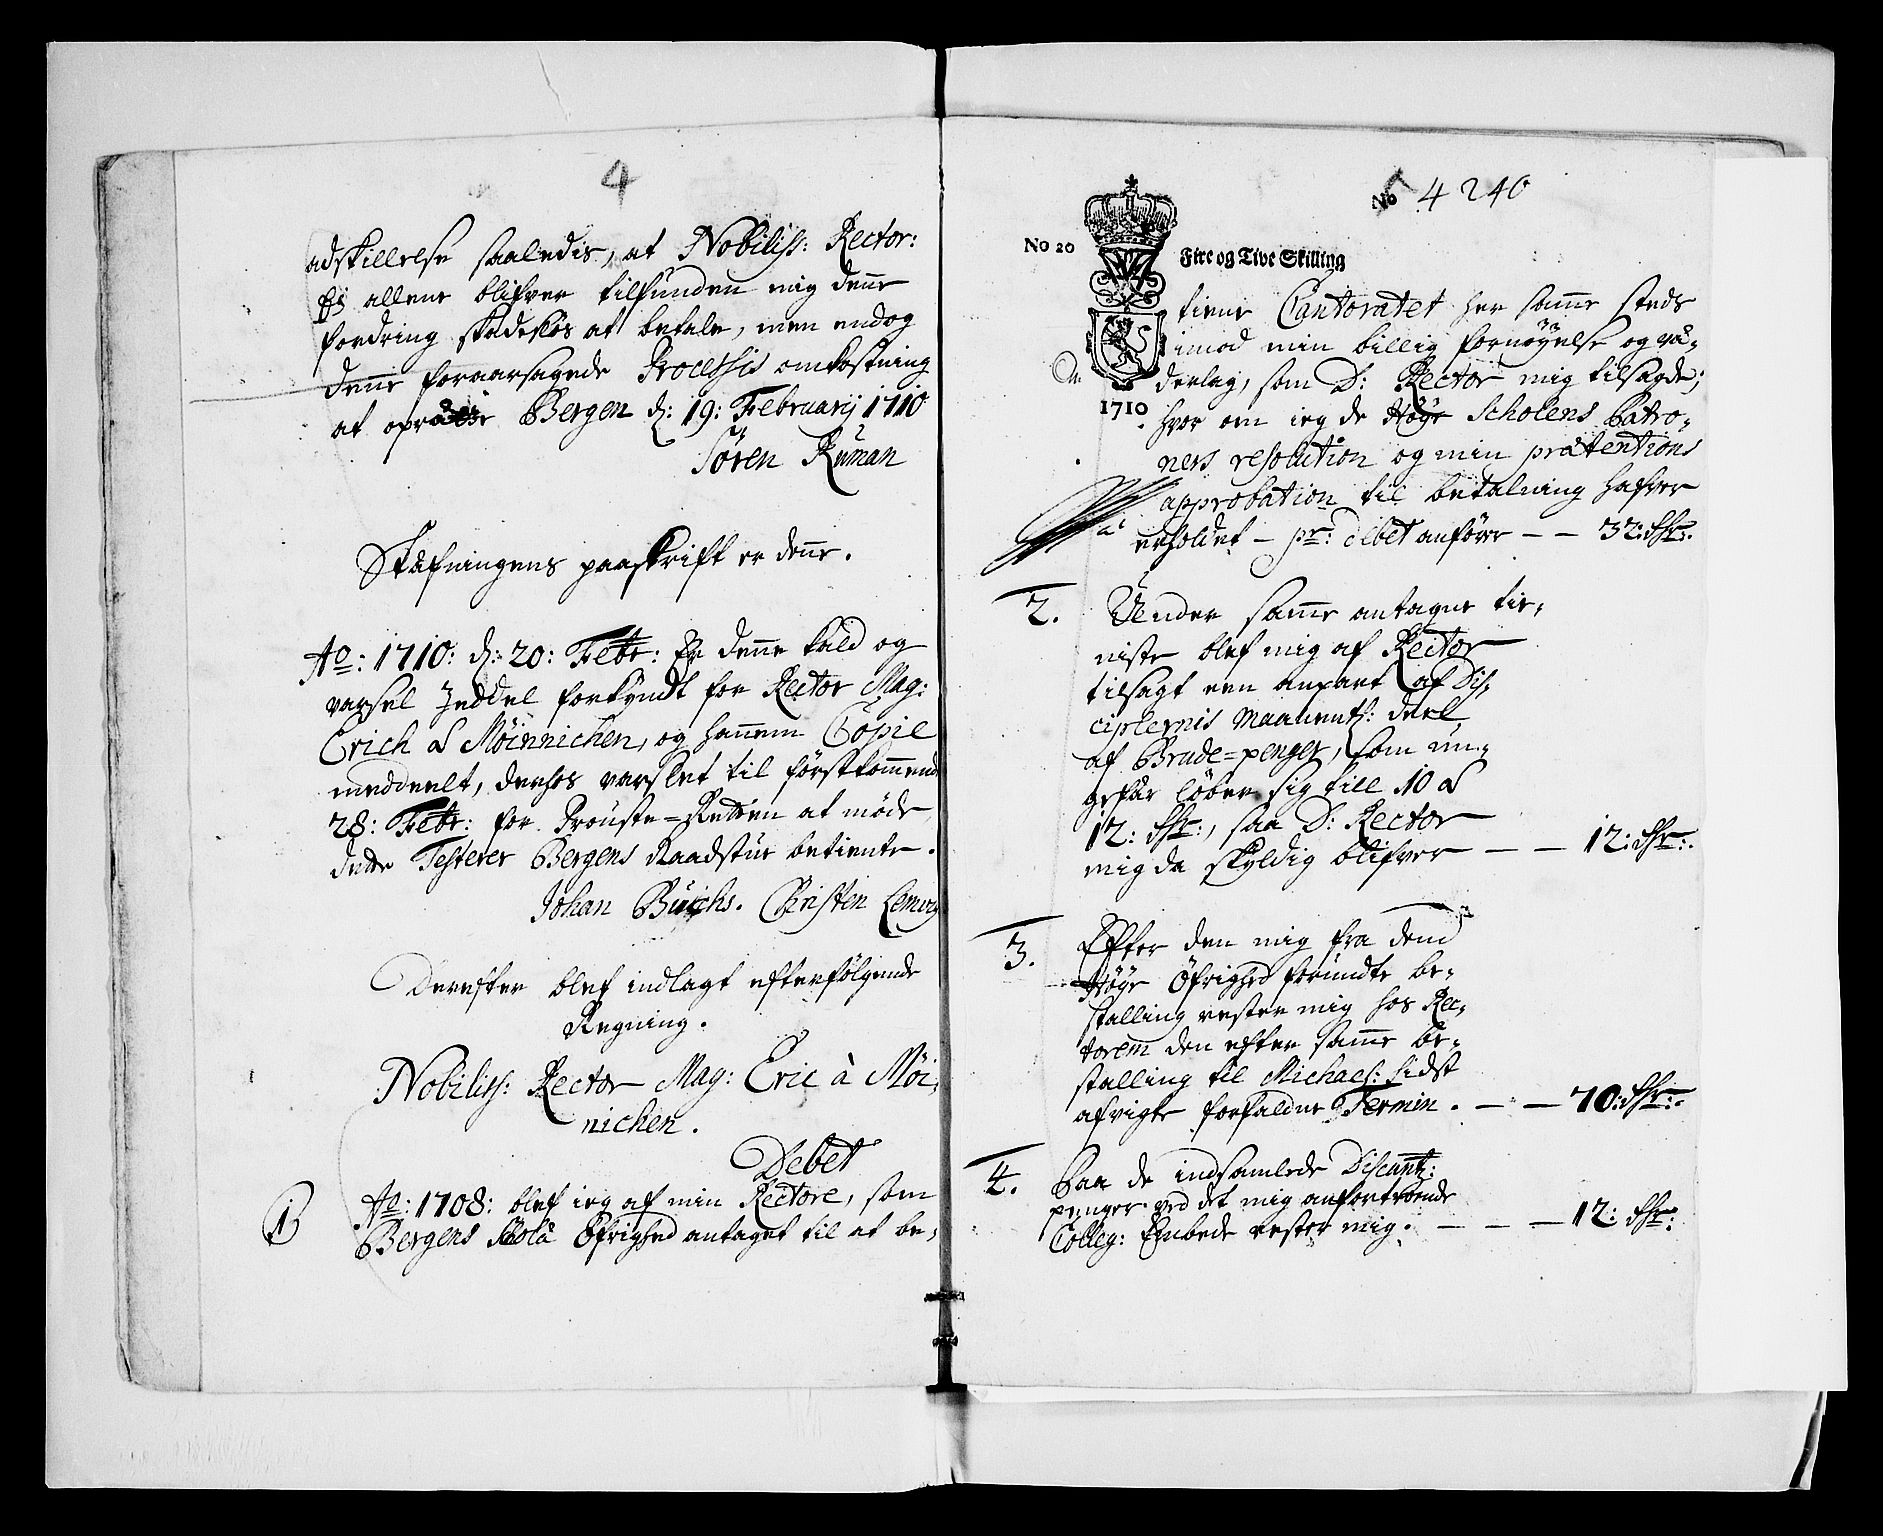 4
adskillelse saaledis, at Nobiliss: Rector:
Ej allene blifver tilfunden mig denne
fordring skadesløs at betale, men endog
denne foraarsagede Processis omkostning
at oprætte Bergen d: 19: Februarij 1710
Søren Ruman
Stæfningens paaskrift er denne.
Ao: 1710: d: 20: Febr: Er denne kald og
varsel Zeddel forkyndt for Rector Mag:
Erich a Møinnichen, og hannem Copie
meddeelt, derhos varslet til førstkommend
28: Febr: for Prouste=Retten at møde,
dette Testerer Bergens Raadstue betiente.
Johan Christen Lemvig
Derefter blef indlagt efterfølgende
Regning.
Nobiliss: Rector Mag: Eric à Møi,
nichen.
Debet
1 Ao: 1708: blef ieg af min Rectore, som
Bergens Øfrighed antaget til at be,
No 4240
No 20
Fire og Tive Skilling
1710
tiene Cantoratet her samme steds
imod min billig fornøyelse og væ,
derlag, som D: Rector mig tilsagde;
hvor om ieg de Høye Scholens Patro,
ners resolution og min prætentions
approbation til betalning hafver
erholdet – pr: debet anfører – – 32: Shr:
2. Under samme antagne tie,
niste blef mig af Rector
tilsagt een anpart af Dis,
ciplernis Maanentl: deel
af Brude=penger, som un,
gefær løber sig till 10 a
12: Shr:, saa D: Rector
mig da skyldig blifver – – 12: Shr:
3. Efter den mig fra dend
Høye Øfrighed forundte be,
stalling rester mig hos Rec,
torem den efter samme be,
stalling til Michaels: sidst
afvigte forfaldne Termin. – – 70: Shr:
4. Saa de indsamlede Discant:
penger ved det mig anfortroende
Colleg: Embede rester mig. – – – 12: Shr: